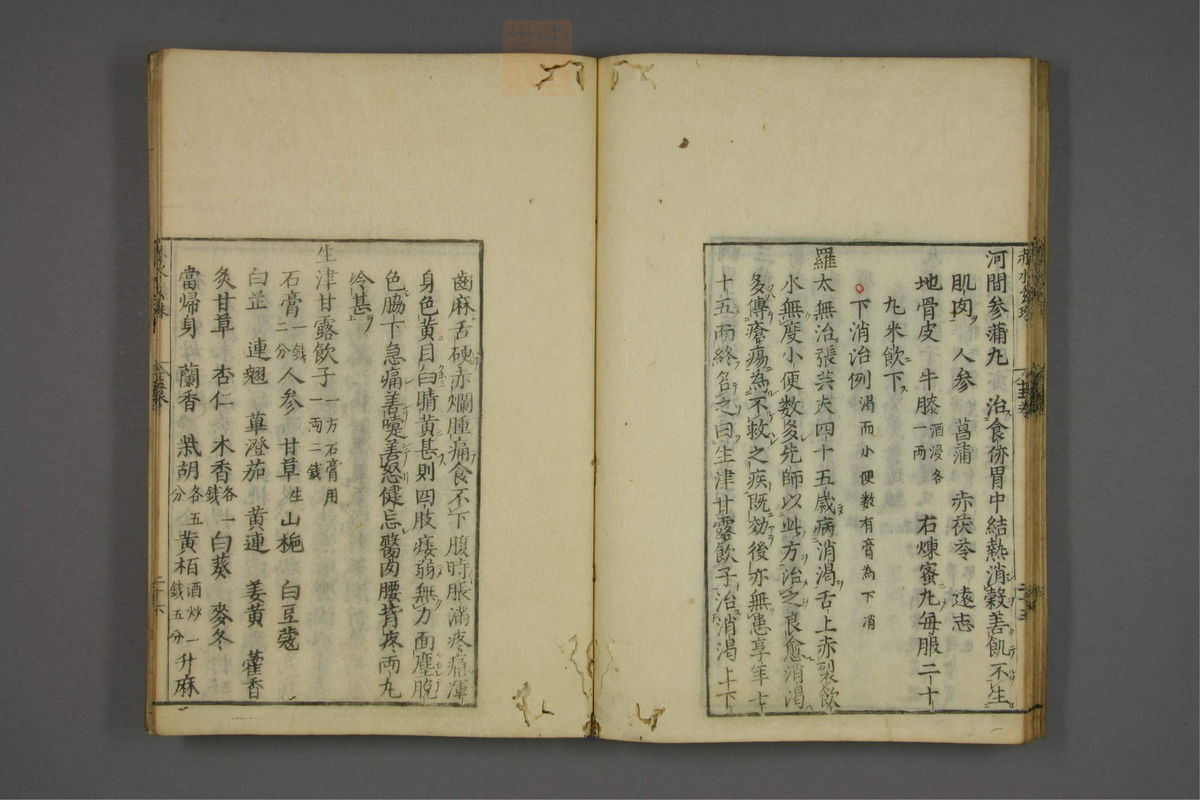 河間参蒲丸 治食㑊胃中結熱消穀善飢不生
肌肉 人参 菖蒲 赤茯苓 遠志
地骨皮 牛膝酒浸各一両 右煉蜜丸毎服二十
丸米飲下
下消治例渇而小便数有膏為下消
羅太無治張芸夫四十五歳病消渇舌上赤裂飲
水無度小便数多先師以此方治之良愈消渇
多傳瘡瘍為不救之疾既効後亦無患享年七
十五而終名之曰生津甘露飲子治消渇上下
齒麻舌硬赤爛腫痛食不下腹時脹満疼痛渾
身色黄目白睛黄甚則四肢痿弱無力面塵脱
色脇下急痛善嚏善怒健忘臀肉腰背疼両丸
冷甚
生津甘露飲子一方石膏用一両二銭
石膏一銭二分 人参 甘草生 山梔 白豆蔻
白芷 連翹 蓽澄茄 黄連 姜黄 藿香
炙甘草 杏仁 木香各一銭 白葵 麥冬
當帰身 蘭香 柴胡各五分 黄栢酒炒一銭五分 升麻